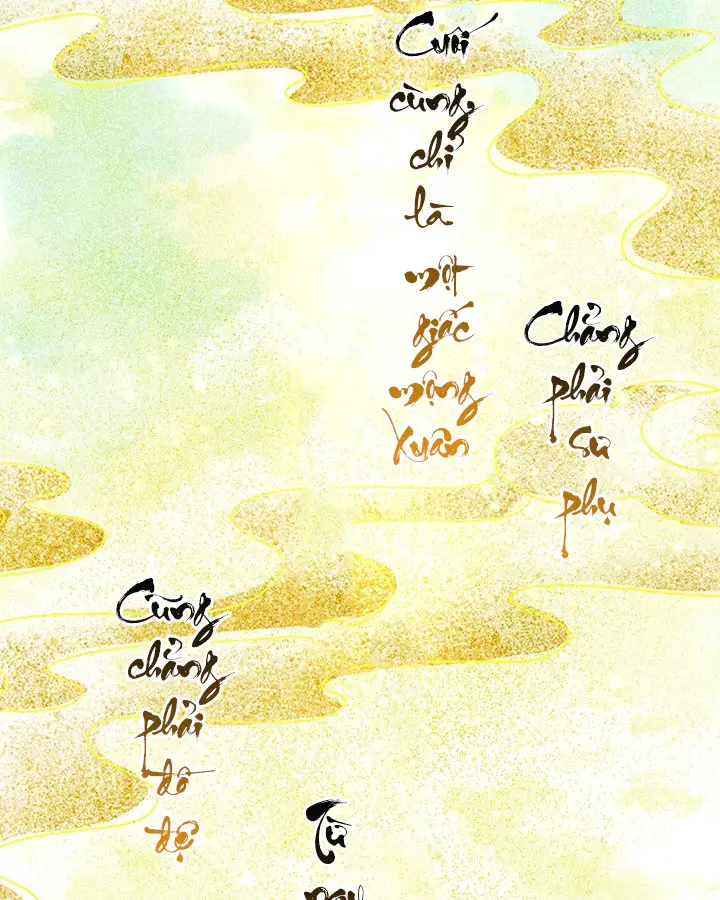 Cuối
cùng,
chỉ
là
một
giấc
mộng
xuân
Chẳng
phải
sư
phụ
Cũng
chẳng
phải
đồ
đệ
Từ
nay